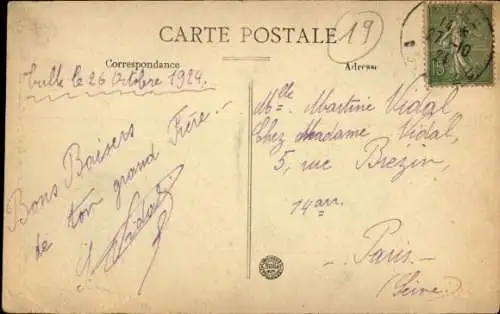 CARTE POSTALE
19
Correspondance
Adresse
Tulle le 26 Octobre 1924.
Bons Baisers
de ton grand Frère!
Vidal
Mlle Martine Vidal
Chez Madame Vidal,
5, rue Brézin,
14 arr.
Paris
(Seine)